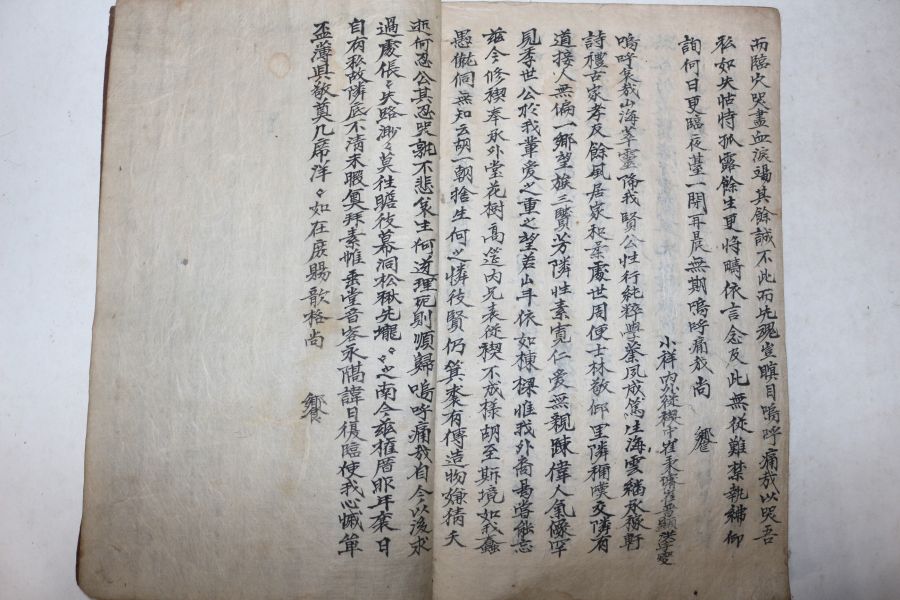 而臨穴哭盡血淚竭其餘誠不此而先魂豈瞑目嗚呼痛哉以哭吾
私如失怙恃孤露餘生更將疇依言念及此無從難禁執紼仰
詢何日更臨夜臺一閉再晨無期嗚呼痛哉尚
饗
小祥內外從稧中崔秉
嗚呼哀哉山海萃靈降我賢公性行純粹學業夙成篤生海雲繙承稼軒
詩禮古家孝友餘風居家和柔處世周便士林敬仰里隣稱情交隣有
道接人無偏一鄉望族三賢芳隣性素寬仁愛無親踈偉人氣像罕
見季世公於我輩愛之重之望若山斗依如棟樑惟我外裔曷嘗能忘
玆今修稧奉承外堂花樹高 內兄表從稧不成樣胡至斯境如我蠢
愚儱侗無知云胡一朝捨生何之憐後賢仍箕裘有傳造物嫌猜天
逝何忍公其忍哭孰不悲哀生何道理死則順歸嗚呼痛哉自今以後求
過處倀々失路渺々莫往瞻彼幕洞松楸先壠々之南今玆權厝昨年喪日
自有私故隣底不淸未暇奠拜素帷垂堂音容永隔諱日復臨使我心慽單
盃薄具敬奠几席洋々如在庶賜歆格尚
饗